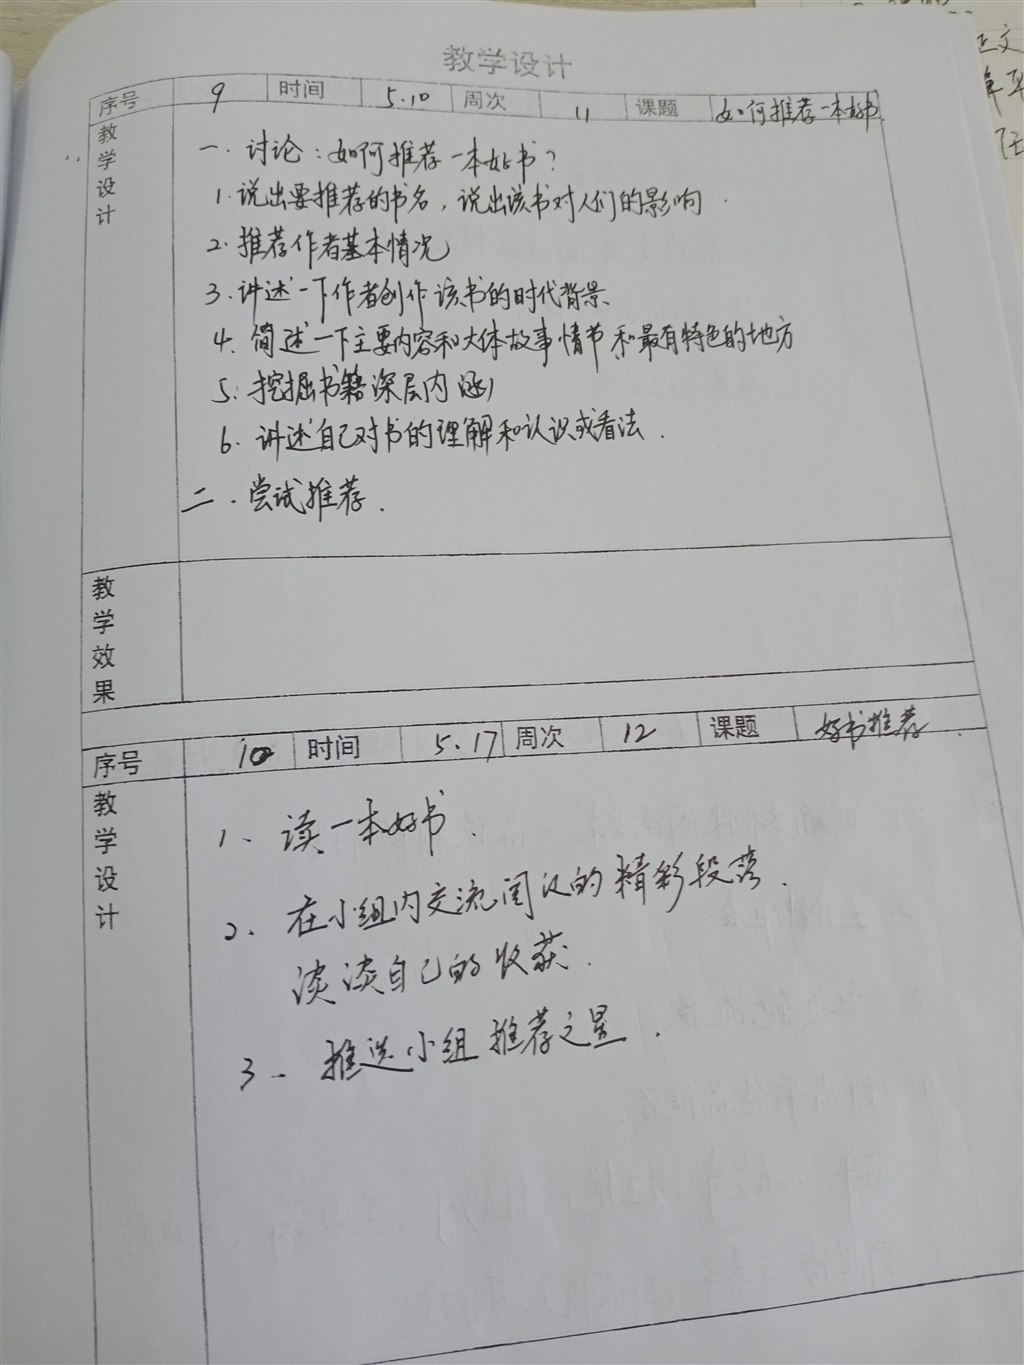 教学设计
序号 9 时间 5.10 周次 11 课题 如何推荐一本好书
教学设计
一、讨论：如何推荐一本好书？
1.说出要推荐的书名，说出该书对人们的影响
2.推荐作者基本情况
3.讲述一下作者创作该书的时代背景
4.简述一下主要内容和大体故事情节和最有特色的地方
5.挖掘书籍深层内涵
6.讲述自己对书的理解和认识或看法.
二.尝试推荐.
教学效果
序号 10 时间 5.17 周次 12 课题 好书推荐.
教学设计
1、读一本好书.
2、在小组内交流阅议的精彩段落.
谈谈自己的收获.
3、推选小组推荐之星.
正文